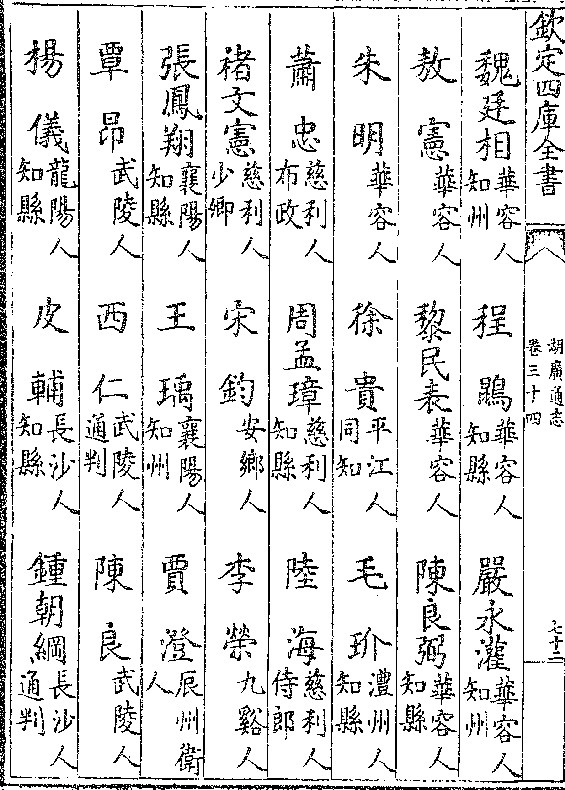 欽定四庫全書
湖廣通志
卷三十四
七十二
魏廷相 華容人知州 程鵾 華容人知縣 嚴永灌 華容人知州
敖憲 華容人 黎民表 華容人 陳良弼 華容人知縣
朱明 華容人 徐貴 平江人同知 毛玠 澧州人知縣
蕭忠 慈利人布政 周孟璋 慈利人知縣 陸海 慈利人侍郎
褚文憲 慈利人少卿 宋鈞 安鄉人 李榮 九谿人
張鳳翔 襄陽人知縣 王瑀 襄陽人知州 賈澄 辰州衛人
覃昂 武陵人 西仁 武陵人通判 陳良 武陵人
楊儀 龍陽人知縣 皮輔 長沙人知縣 鍾朝綱 長沙人通判